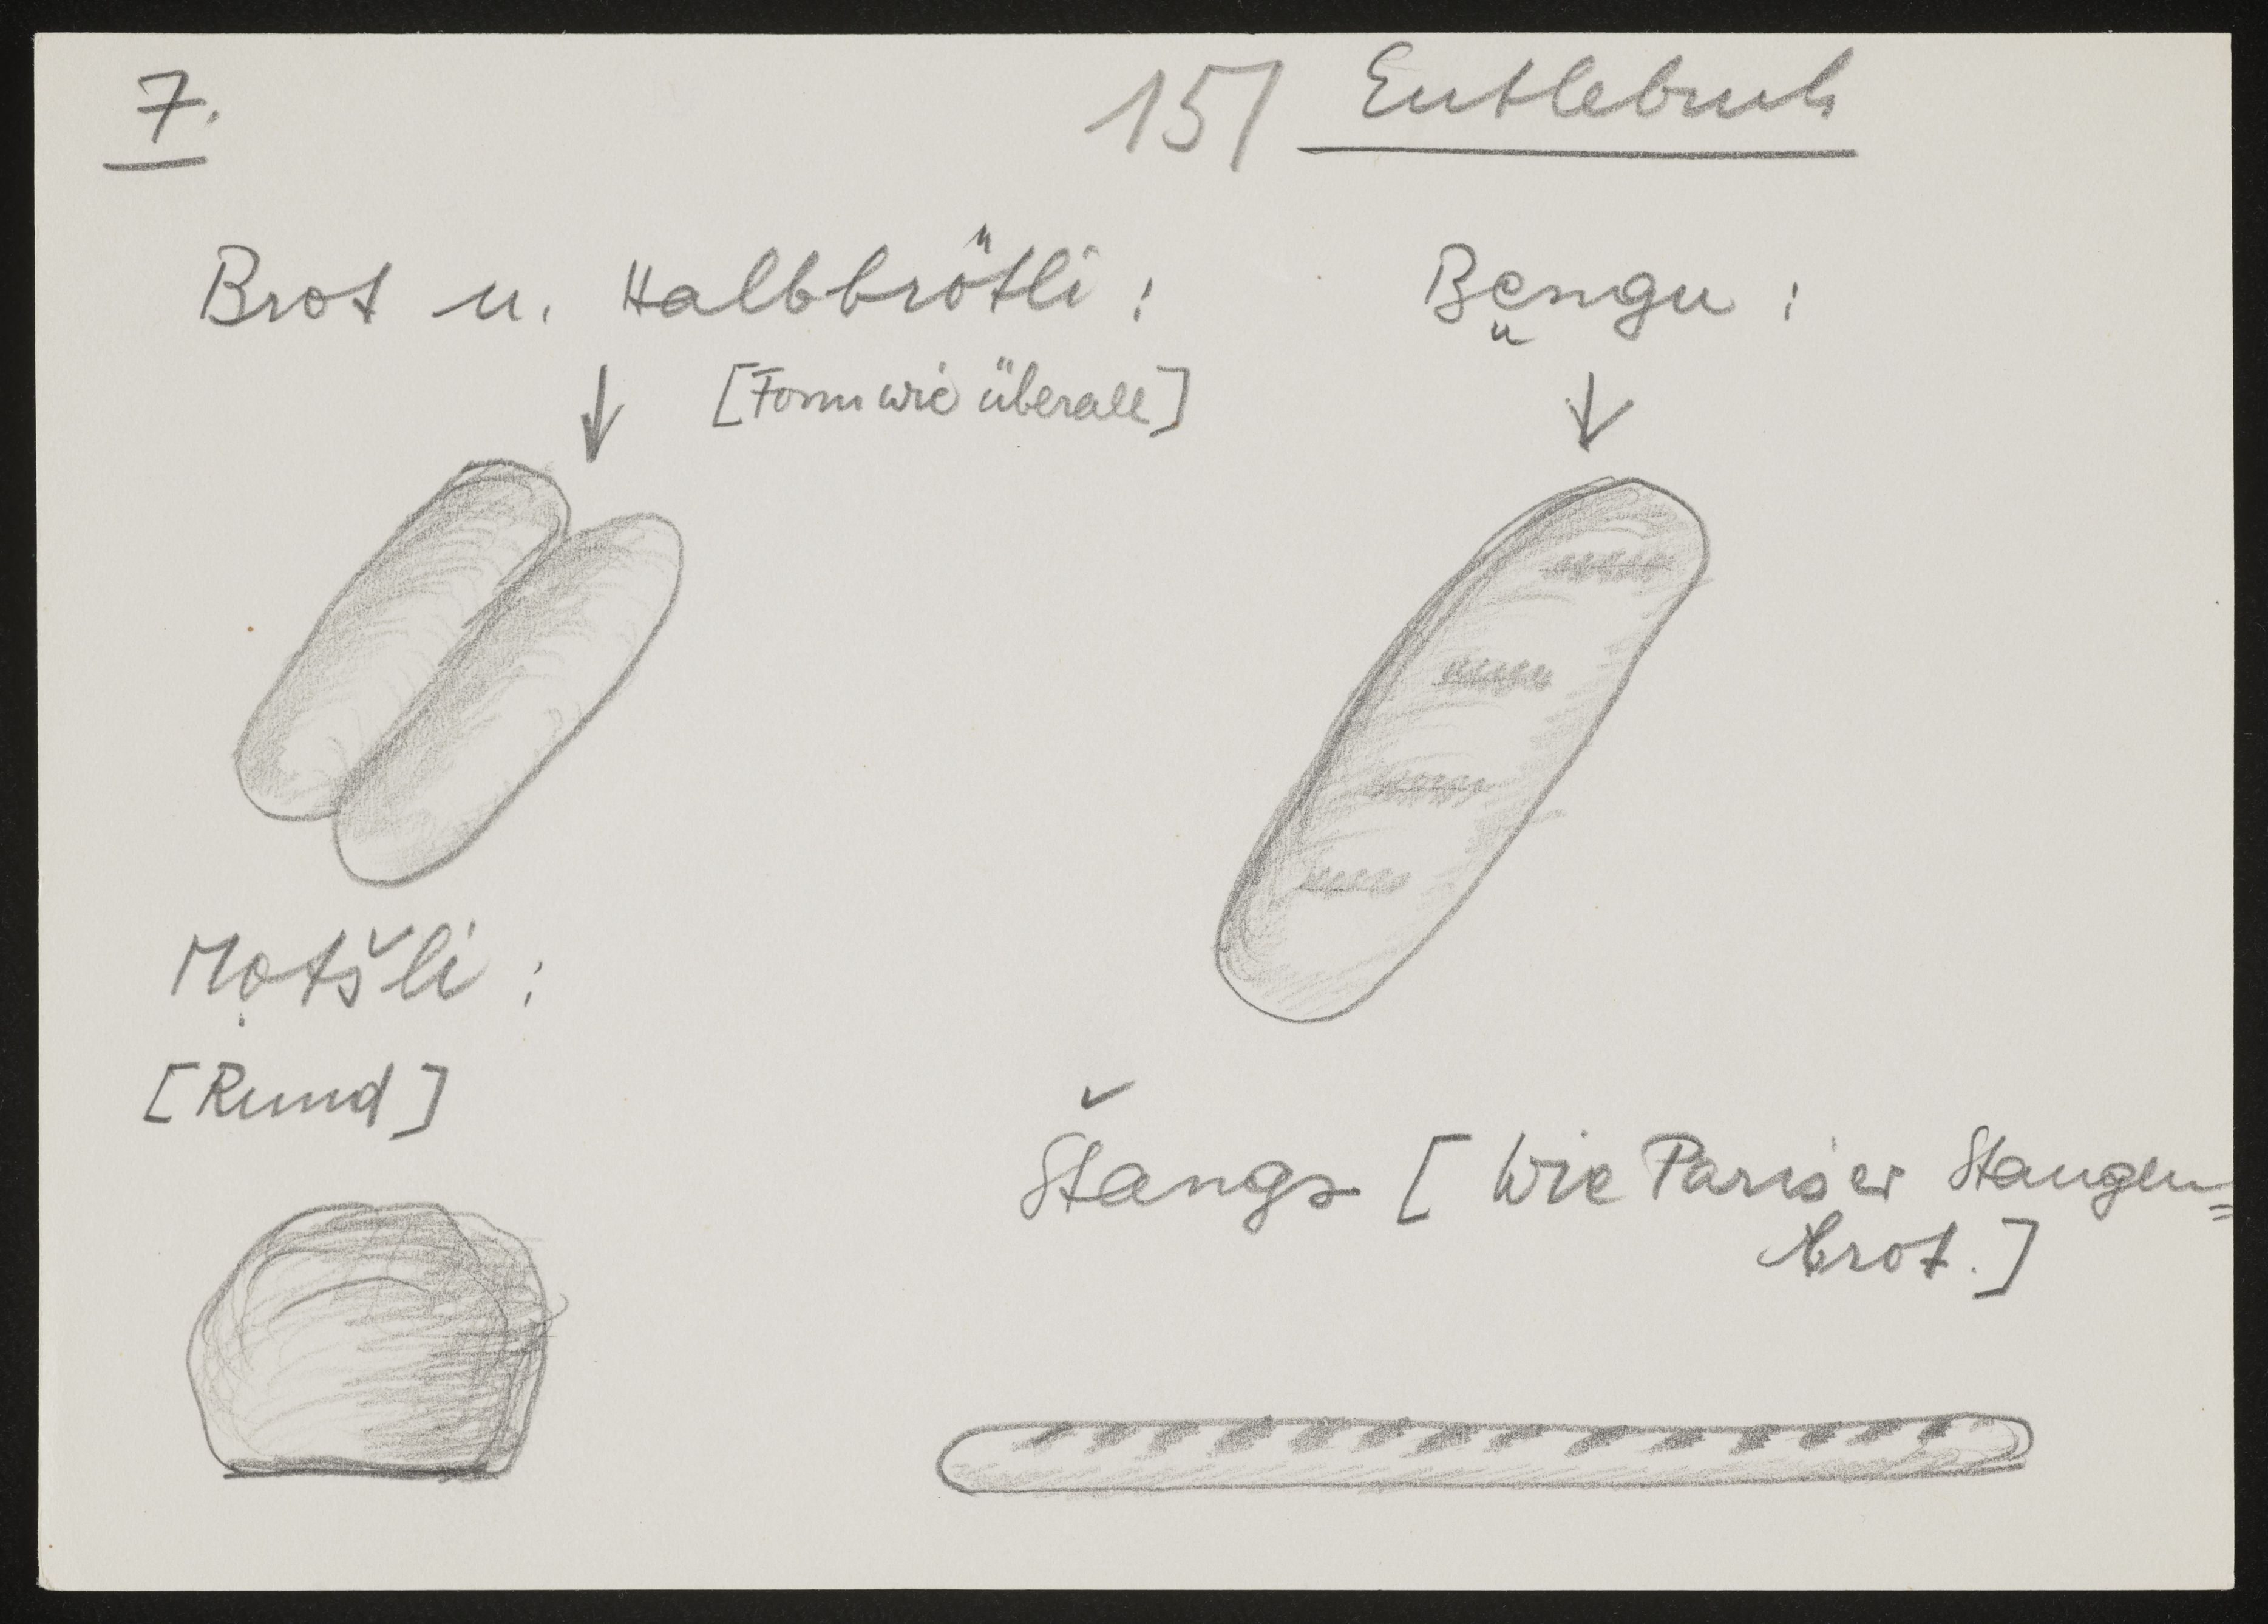 7.
15/ Entlebuch
Brot u. Halbbrötli :
[Form wie überall]
Bęngu :
Mọtšli :
[Rund]
Štangə [Wie Pariser Stangen=
brot.]